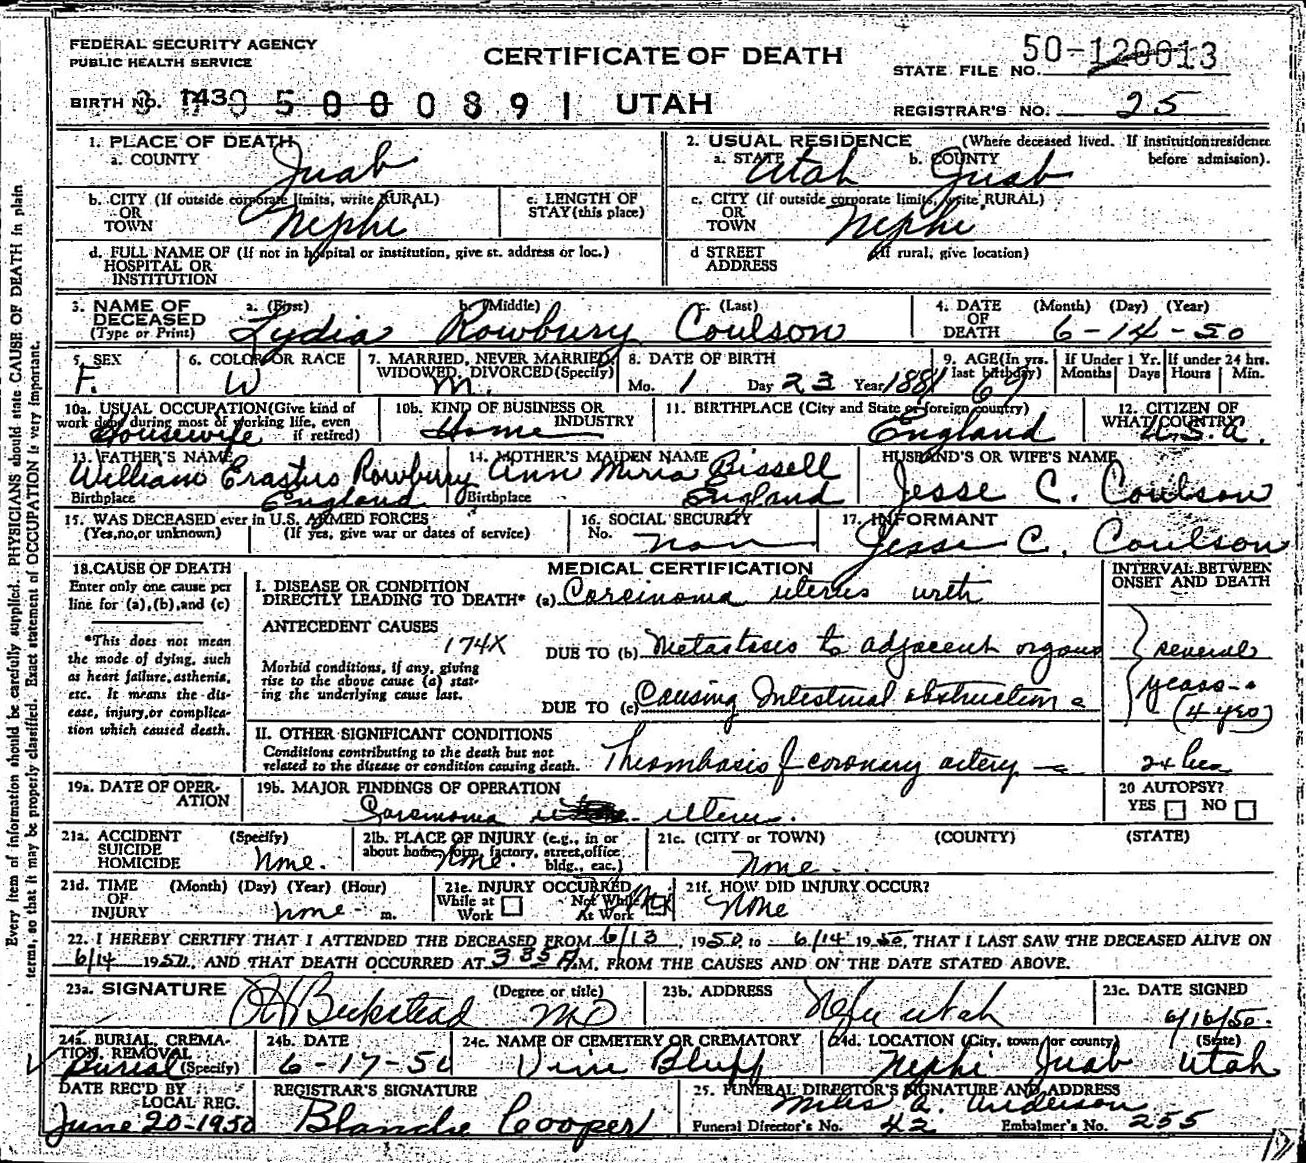 FEDERAL SECURITY AGENCY
PUBLIC HEALTH SERVICE
CERTIFICATE OF DEATH
STATE FILE NO. 50-120013
BIRTH NO. 143 0 5 0 0 0 8 9 1 UTAH
REGISTRAR'S NO. 25
1. PLACE OF DEATH
a. COUNTY Juab
2. USUAL RESIDENCE (Where deceased lived. If institution: residence before admission).
a. STATE Utah b. COUNTY Juab
b. CITY (If outside corporate limits, write RURAL) OR TOWN Nephi
c. LENGTH OF STAY (this place)
c. CITY (If outside corporate limits, write RURAL) OR TOWN Nephi
d. FULL NAME OF (If not in hospital or institution, give st. address or loc.) HOSPITAL OR INSTITUTION
d STREET ADDRESS (If rural, give location)
3. NAME OF DECEASED (Type or Print) a. (First) Lydia b. (Middle) Rowbury c. (Last) Coulson
4. DATE OF DEATH (Month) (Day) (Year) 6-14-50
5. SEX F.
6. COLOR OR RACE W
7. MARRIED, NEVER MARRIED, WIDOWED, DIVORCED (Specify) M.
8. DATE OF BIRTH Mo. 1 Day 23 Year 1881
9. AGE (In yrs. last birthday) 69
If Under 1 Yr. Months Days
If under 24 hrs. Hours Min.
10a. USUAL OCCUPATION (Give kind of work done during most of working life, even if retired) Housewife
10b. KIND OF BUSINESS OR INDUSTRY Home
11. BIRTHPLACE (City and State or foreign country) England
12. CITIZEN OF WHAT COUNTRY U.S.A.
13. FATHER'S NAME William Erastus Rowberry
Birthplace England
14. MOTHER'S MAIDEN NAME Ann Miria Bissell
Birthplace England
HUSBAND'S OR WIFE'S NAME Jesse C. Coulson
15. WAS DECEASED ever in U.S. ARMED FORCES (Yes, no, or unknown) (If yes, give war or dates of service)
16. SOCIAL SECURITY No. non
17. INFORMANT Jesse C. Coulson
18. CAUSE OF DEATH
Enter only one cause per line for (a), (b), and (c)
*This does not mean the mode of dying, such as heart failure, asthenia, etc. It means the disease, injury, or complication which caused death.
MEDICAL CERTIFICATION
INTERVAL BETWEEN ONSET AND DEATH
I. DISEASE OR CONDITION DIRECTLY LEADING TO DEATH* (a) Carcinoma uterus with
ANTECEDENT CAUSES 174X
DUE TO (b) Metastases to adjacent organs
several
Morbid conditions, if any, giving rise to the above cause (a) stating the underlying cause last.
DUE TO (c) Causing Intestinal obstruction
years
(4 yrs)
II. OTHER SIGNIFICANT CONDITIONS
Conditions contributing to the death but not related to the disease or condition causing death. Thrombosis of coronary artery
24 hrs
19a. DATE OF OPERATION
19b. MAJOR FINDINGS OF OPERATION
Carcinoma uterus.
20 AUTOPSY? YES NO
21a. ACCIDENT SUICIDE HOMICIDE (Specify) None.
21b. PLACE OF INJURY (e.g., in or about home, farm, factory, street, office bldg., eac.) None.
21c. (CITY or TOWN) (COUNTY) (STATE)
None
21d. TIME OF INJURY (Month) (Day) (Year) (Hour) none m.
21e. INJURY OCCURRED While at Work Not While At Work
21f. HOW DID INJURY OCCUR? None
22. I HEREBY CERTIFY THAT I ATTENDED THE DECEASED FROM 6/13, 1950, to 6/14 1950, THAT I LAST SAW THE DECEASED ALIVE ON
6/14 1950, AND THAT DEATH OCCURRED AT 3 85 A.M. FROM THE CAUSES AND ON THE DATE STATED ABOVE.
23a. SIGNATURE Beckstead (Degree or title) MD
23b. ADDRESS Utah
23c. DATE SIGNED 6/16/50.
24a. BURIAL, CREMATION, REMOVAL (Specify) Burial
24b. DATE 6-17-50
24c. NAME OF CEMETERY OR CREMATORY Vine Bluff
24d. LOCATION (City, town, or county) (State) Nephi Juab Utah
DATE REC'D BY LOCAL REG. June 20-1950
REGISTRAR'S SIGNATURE
Blanche Cooper
25. FUNERAL DIRECTOR'S SIGNATURE AND ADDRESS
Miles A. Anderson
Funeral Director's No. 42 Embalmer's No. 255
Every item of information should be carefully supplied. PHYSICIANS should state CAUSE OF DEATH in plain
terms, so that it may be properly classified. Exact statement of OCCUPATION is very important.